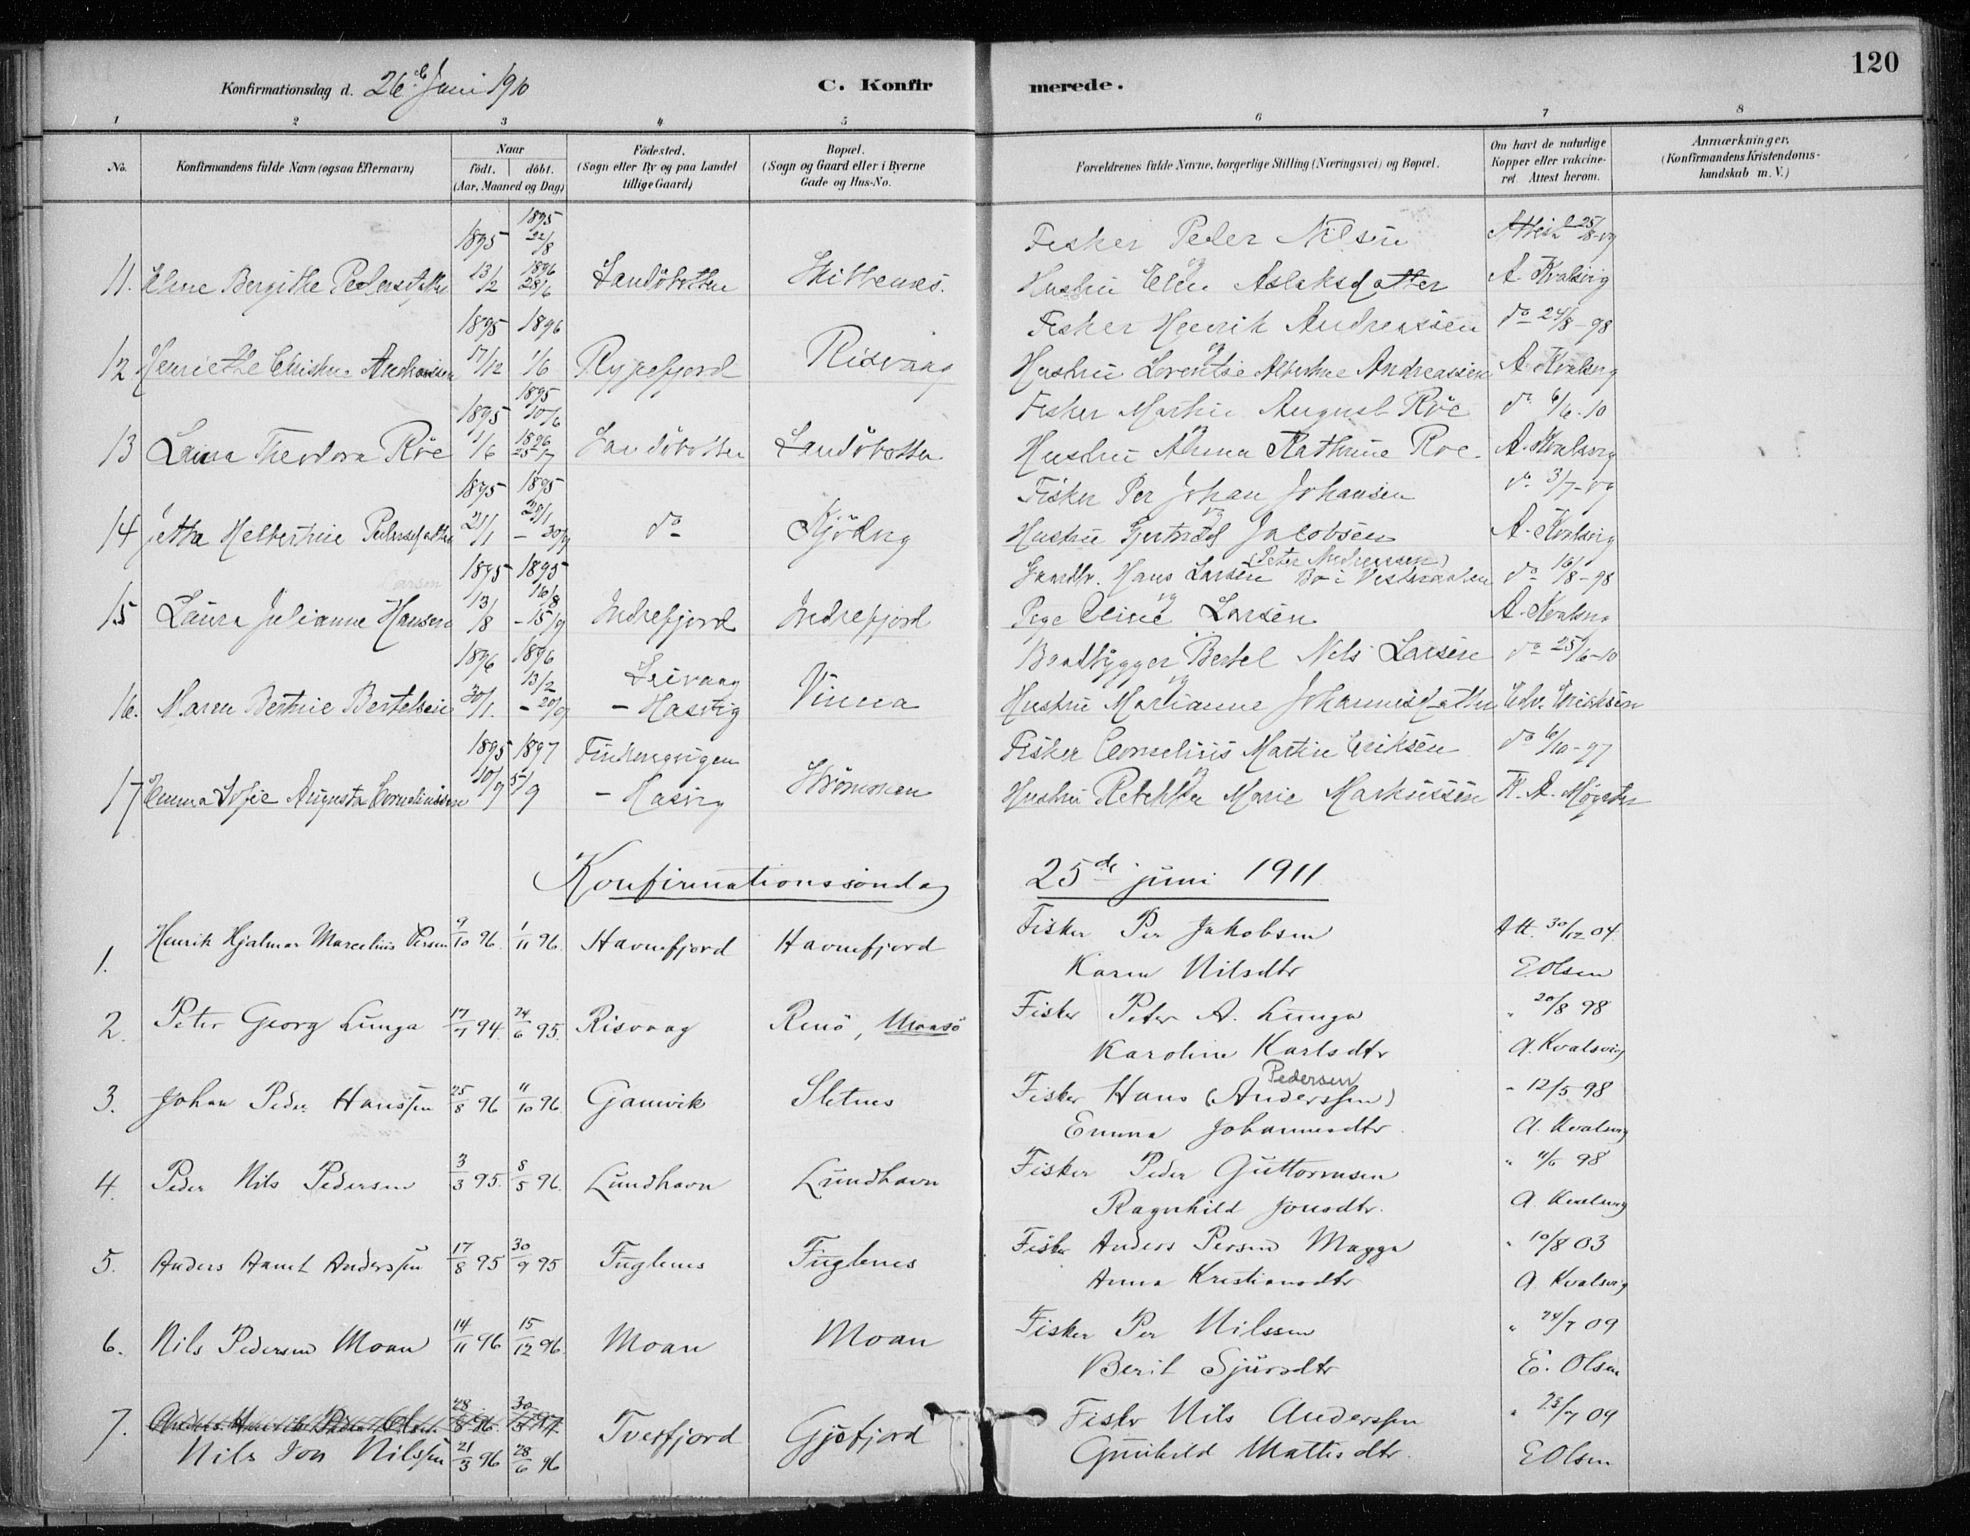 120
Konfirmationsdag d. 26de Juni 1910
C. Konfirmerede.
1 2 3 4 5 6 7 8
No. Konfirmandens fulde Navn (ogsaa Efternavn) Naar født. døbt. (Aar, Maaned og Dag) Fødested. (Sogn eller By og paa Landet tillige Gaard) Bopæl. (Sogn og Gaard eller i Byerne Gade og Hus-No. Forældrenes fulde Navne, borgerlige Stilling (Næringsvei) og Bopæl. Om havt de naturlige Kopper eller vaccineret. Attest herom. Anmærkninger. (Konfirmandens Kristendomskundskab m. V.)
1895 1895 22/8 Fisker Peder Nilsen
11. Elene Bergithe Pedersdatter 13/2 1896 28/6 Sandöbotten Skittenes. og Hustru Elen Aslaksdatter A. Kvalsvig
1895 1896 Fisker Henrik Andreassen do 24/8-98
12 Henriethe Christine Andreassen 17/12 1/6 Rypefjord Risvaag og Hustru Lorentse Albertine Andreassen A. Kvalsvig
1895 1895 10/6 Fisker Martin August Röe do 6/6-10
13 Laura Theodora Röe 1/6 1896 25/7 Sandöbotten Sandöbotten og Hustru Anna Kathrine Roe. A. Kvalsvig
1895 1895 Fisker Per Johan Johansen do 3/7-
14 Helbertine Pedersdatter 21/1 29/1 - 30/9 do Kjödvig og Hustru Gjertrud Jacobsen A. Kvalsvig
1895 1895 Gaardbr. Hans Larsen (Peter Andreassen) Bo i Vesteraalen do 16/8-98
15 Laura Julianne Hansen Larsen 13/8 16/8 - 15/9 Indrefjord Indrefjord og Pige Eline Larsen A. Kvalsvig
1896 1896 Baadbygger Bertel Nils Larsen do 25/6-10
16. Maren Bertine Bertelsen 30/1. 13/2 - 20/9 - Hasvig Vinna og Hustru Marianne Johannesdatter Edv. Eriksen
1895 1897 Fisker Cornelius Martin Eriksen do 6/10-97
17 Emma Sofie Augusta Corneliussen 10/9 5/9 - Hasvig Strömmen og Hustru Rebekka Marie Markussen K. A. Møgster
Konfirmationssöndag 25de juni 1911.
1. Henrik Hjalmar Marcelius Persen 9/10 96. 1/11 96. Havnefjord Havnefjord Fisker Per Jakobsen Att. 30/12 04.
Karen Nilsdtr E Olsen
2. Peter Georg Lunga 17/ 94. 24/6 95. Risvaag Renö, Maasö Fisker Peter A. Lunga " 20/8 98
Karoline Karlsdtr A. Kvalsvig
3. Johan Peder Hanssen 25/8 96 11/10 96. Gamvik Sletnes Fisker Hans (Anderssen) Pedersen " 12/5 98
Emma Johannesdtr. A. Kvalsvig
4. Peder Nils Pedersen 3/3 95. 8/5 96. Lundhavn Lundhavn Fisker Peder Guttormsen " 11/6 98
Ragnhild Jonsdtr. A. Kvalsvig
5. Anders Aamot Anderssen 17/8 95 30/9 95 Fuglenes Fuglenes Fisker Anders Persen Magga " 10/8 03
Anna Kristiansdtr A. Kvalsvig
6. Nils Pedersen Moan 14/11 96 15/12 96. Moan Moan Fisker Per Nilssen " 24/7 09
Berit Sjursdtr E. Olsen
7. 28/8 96. 30/ Tverfjord Gjøfjord Fisker Nils Anderssen " 23/7 09
Nils Jon Nilssen 21/3 96 28/6 96 Gunhild Mattisdtr. E Olsen